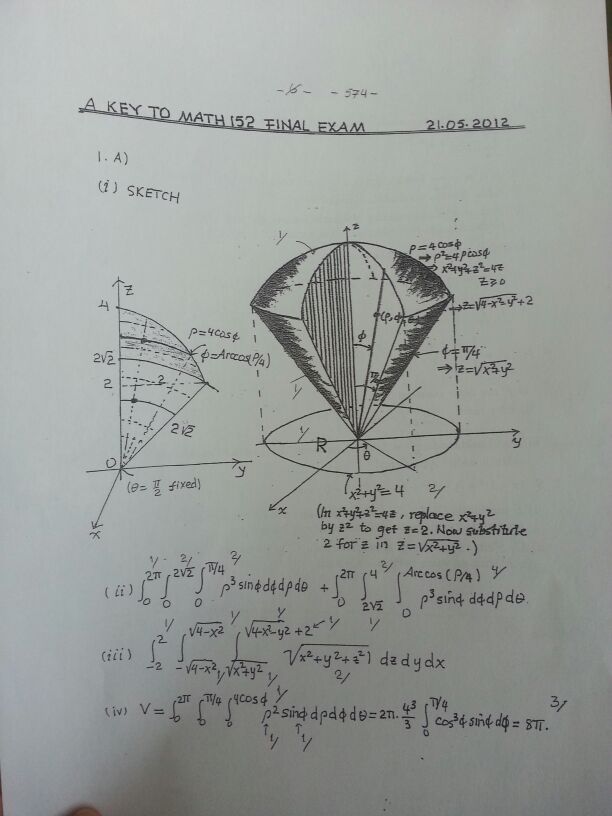 -15- -574-
A KEY TO MATH 152 FINAL EXAM 21.05.2012
1. A)
(i) SKETCH
z
4
ρ=4cosφ
φ=Arccos(ρ/4)
2√2
2
2
2√2
0
y
(θ=π/2 fixed)
x
z
1/
ρ=4cosφ
→ρ²=4ρcosφ
→x²+y²+z²=4z
z≥0
→z=√4-x²-y²+2
φ
φ=π/4
⇒z=√x²+y²
1/
1/
R
θ
y
x
x²+y²=4 2/
(In x²+y²+z²=4z, replace x²+y²
by z² to get z=2. Now substitute
2 for z in z=√x²+y².)
(ii) ∫₀^2π ∫₀^2√2 ∫₀^π/4 ρ³sinφdφdρdθ + ∫₀^2π ∫_2√2^4 ∫₀^Arccos(ρ/4) ρ³sinφ dφdρdθ
(iii) ∫_-2^2 ∫_-√4-x²^√4-x² ∫_√x²+y²^√4-x²-y²+2 √x²+y²+z² dz dy dx
(iv) V=∫₀^2π ∫₀^π/4 ∫₀^4cosφ ρ²sinφdρdφdθ=2π.4³/3 ∫₀^π/4 cos³φsinφdφ=8π. 3/